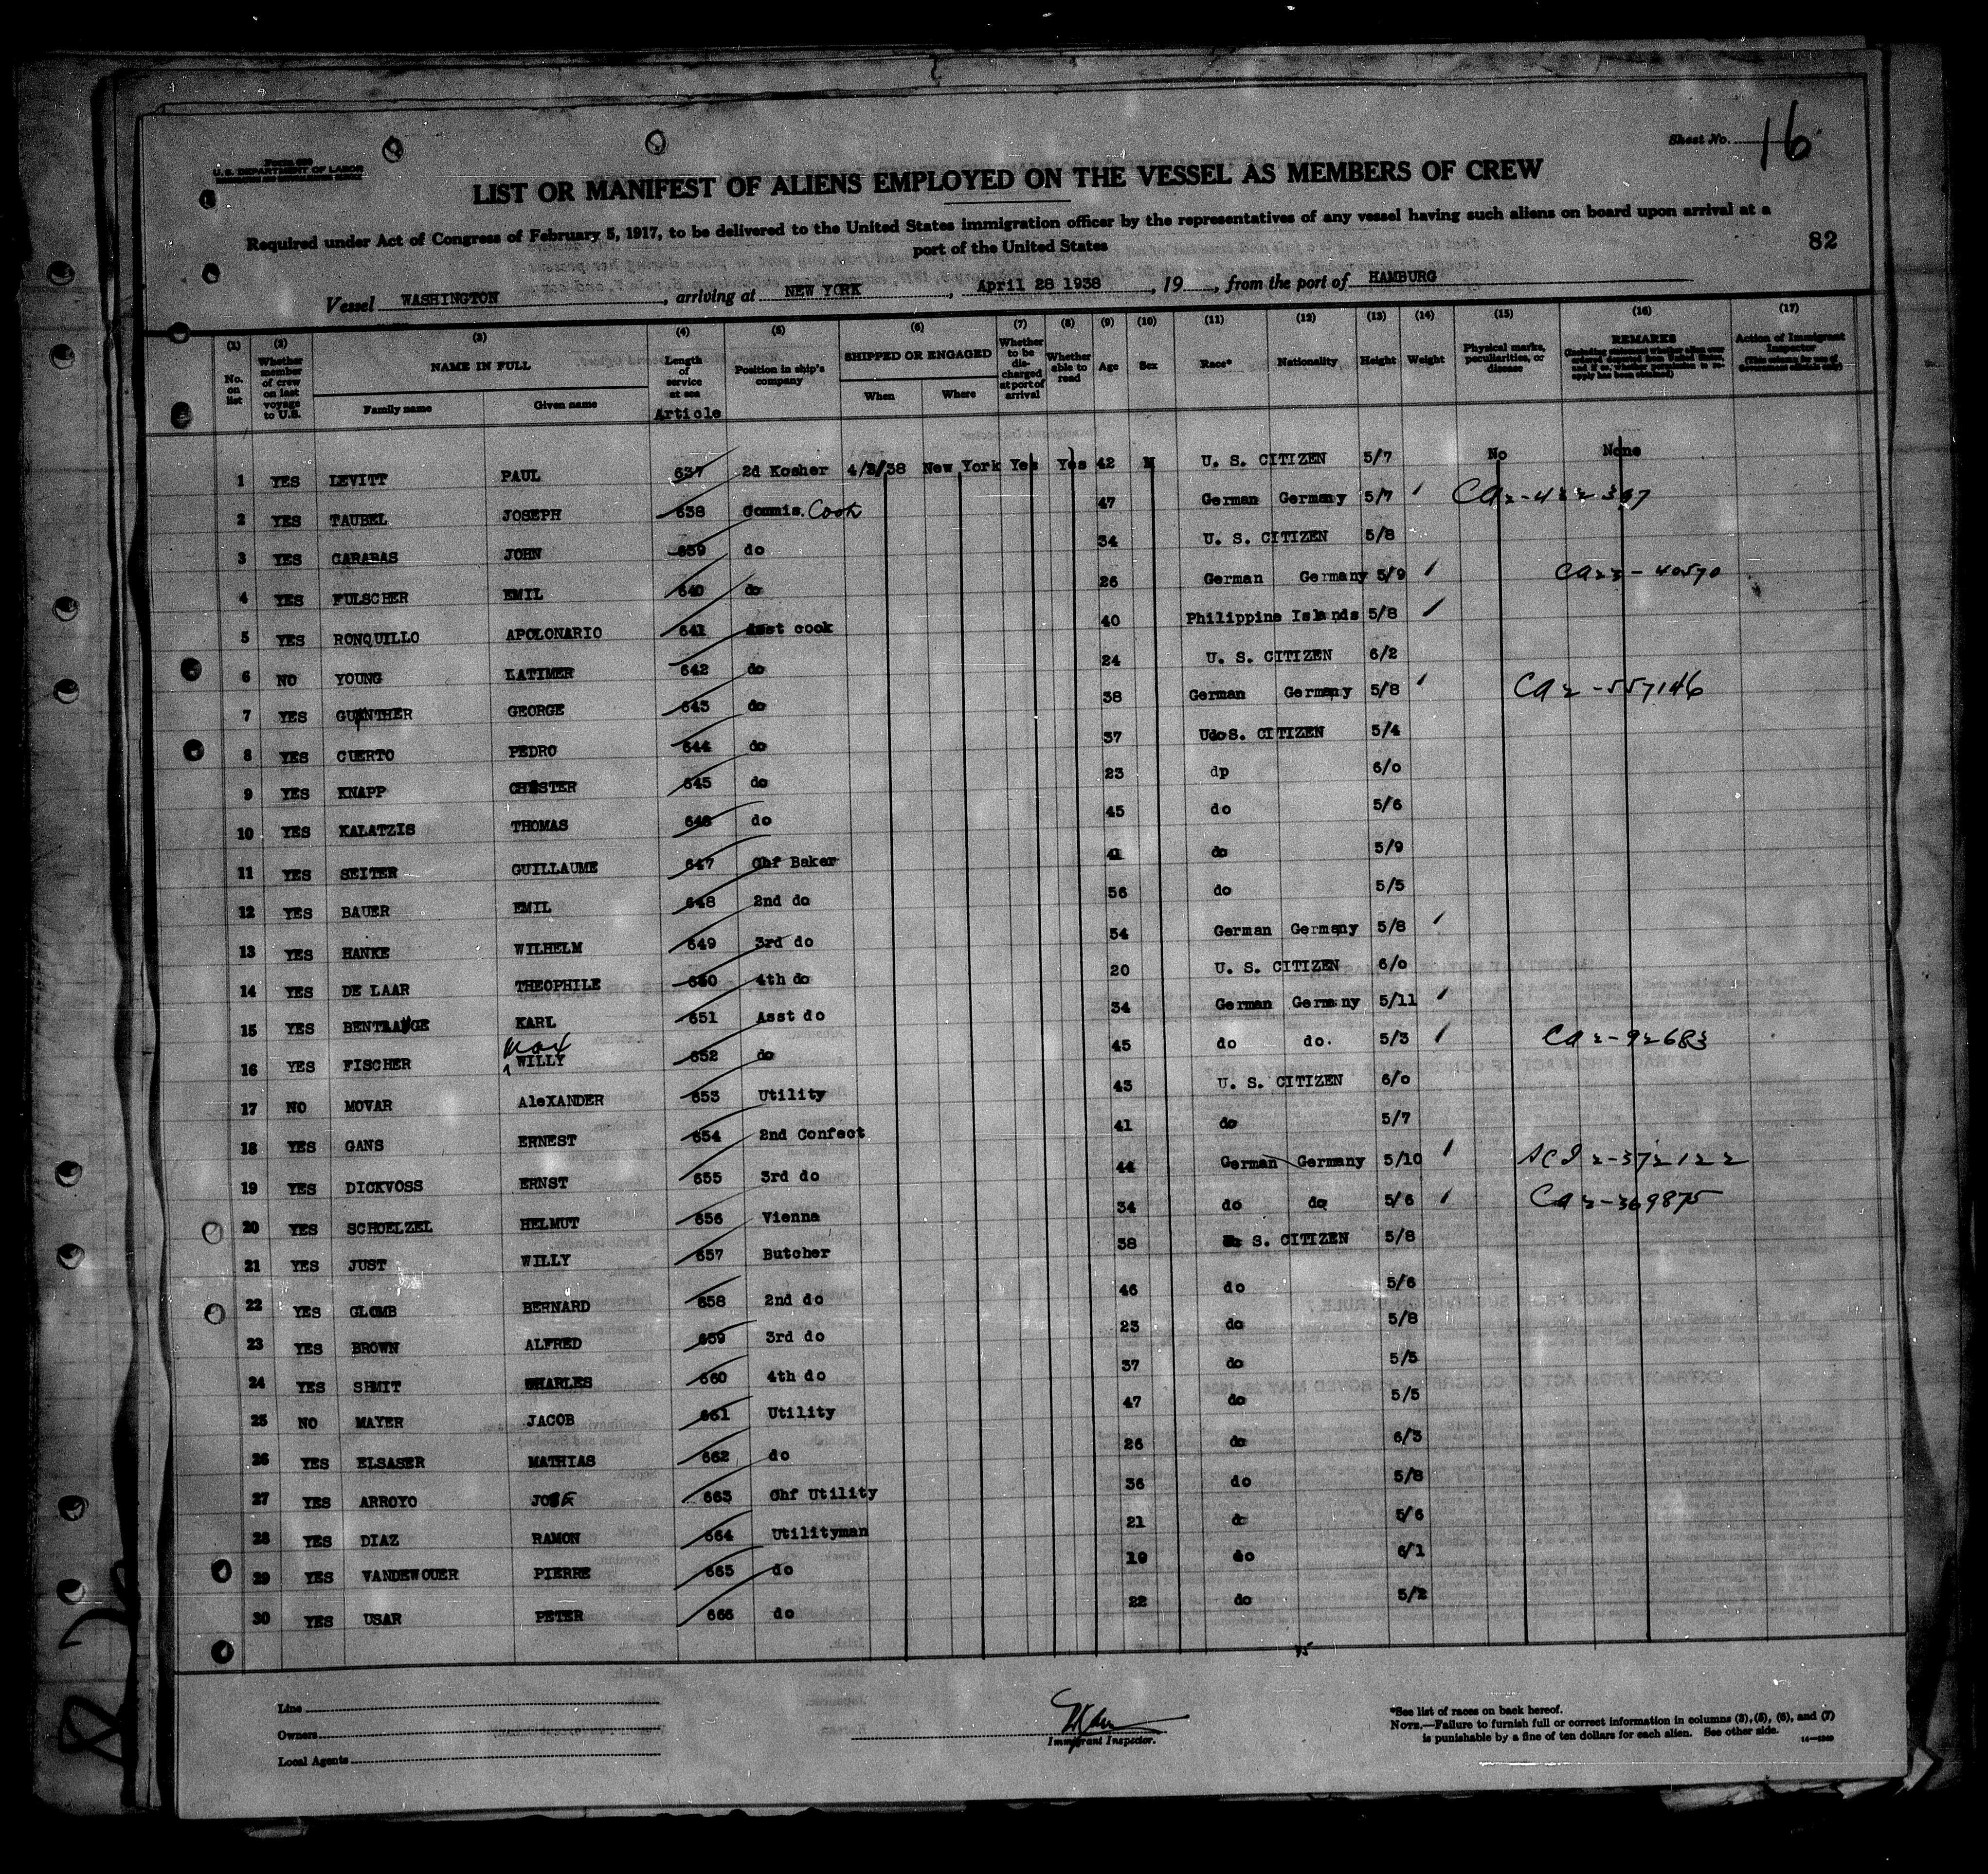 Sheet No. 16
Form 689
U. S. DEPARTMENT OF LABOR
LIST OR MANIFEST OF ALIENS EMPLOYED ON THE VESSEL AS MEMBERS OF CREW
Required under Act of Congress of February 5, 1917, to be delivered to the United States immigration officer by the representatives of any vessel having such aliens on board upon arrival at a
port of the United States
82
Vessel WASHINGTON, arriving at NEW YORK, April 28 1938, 19, from the port of HAMBURG
(1) (2) (3) (4) (5) (6) (7) (8) (9) (10) (11) (12) (13) (14) (15) (16) (17)
No. on list Whether member of crew on last voyage to U.S. NAME IN FULL Family name Given name Length of service at sea Article Position in ship's company SHIPPED OR ENGAGED When Where Whether to be discharged at port of arrival Whether able to read Age Sex Race* Nationality Height Weight Physical marks, peculiarities, or disease REMARKS (Including statement whether alien ever ordered deported from United States, and if so, whether permission to reapply has been obtained) Action of Immigrant Inspector (This column for use of Government officials only)
1 YES LEVITT PAUL 637 2d Kosher 4/2/38 New York Yes Yes 42 M U. S. CITIZEN 5/7 No None
2 YES TAUBEL JOSEPH 638 Commis. Cook 47 German Germany 5/7
3 YES CARABAS JOHN 639 do 34 U. S. CITIZEN 5/8
4 YES FULSCHER EMIL 640 do 26 German Germany 5/9 Ca23-40570
5 YES RONQUILLO APOLONARIO 641 Asst cook 40 Philippine Islands 5/8
6 NO YOUNG LATIMER 642 do 24 U. S. CITIZEN 6/2
7 YES GUNTHER GEORGE 643 do 38 German Germany 5/8 Ca 2-557146
8 YES CUERTO PEDRO 644 do 37 U. S. CITIZEN 5/4
9 YES KNAPP CHESTER 645 do 23 dp 6/0
10 YES KALATZIS THOMAS 646 do 45 do 5/6
11 YES SEITER GUILLAUME 647 Chf Baker 41 do 5/9
12 YES BAUER EMIL 648 2nd do 56 do 5/5
13 YES HANKE WILHELM 649 3rd do 54 German Germany 5/8
14 YES DE LAAR THEOPHILE 650 4th do 20 U. S. CITIZEN 6/0
15 YES KARL 651 Asst do 34 German Germany 5/11
16 YES FISCHER Max WILLY 652 do 45 do do. 5/3 Ca 2-92683
17 NO MOVAR AleXANDER 653 Utility 43 U. S. CITIZEN 6/0
18 YES GANS ERNEST 654 2nd Confect 41 do 5/7
19 YES DICKVOSS ERNST 655 3rd do 44 German Germany 5/10 2-372122
20 YES SCHOELZEL HELMUT 656 Vienna 34 do do 5/6 Ca 2-369875
21 YES JUST WILLY 657 Butcher 38 S. CITIZEN 5/8
22 YES GLOMB BERNARD 658 2nd do 46 do 5/6
23 YES BROWN ALFRED 659 3rd do 23 do 5/8
24 YES SHMIT CHARLES 660 4th do 37 do 5/5
25 NO MAYER JACOB 661 Utility 47 do 5/5
26 YES ELSASER MATHIAS 662 do 26 do 6/3
27 YES ARROYO JOSE 663 Chf Utility 36 do 5/8
28 YES DIAZ RAMON 664 Utilityman 21 do 5/6
29 YES VANDEWOUER PIERRE 665 do 19 do 6/1
30 YES USAR PETER 666 do 22 do 5/2
Line
Owners
Local Agents
Immigrant Inspector.
*See list of races on back hereof.
NOTE.—Failure to furnish full or correct information in columns (3), (5), (6), and (7)
is punishable by a fine of ten dollars for each alien. See other side.